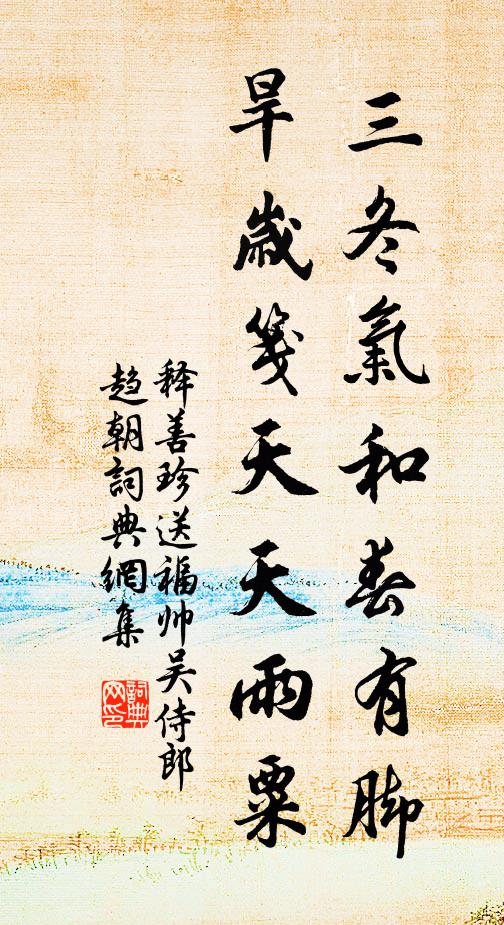 三冬氣和春有脚
旱歲箋天天雨粟
释善珍送福帅吴侍郎
趋朝詞典網集
詞典
网印